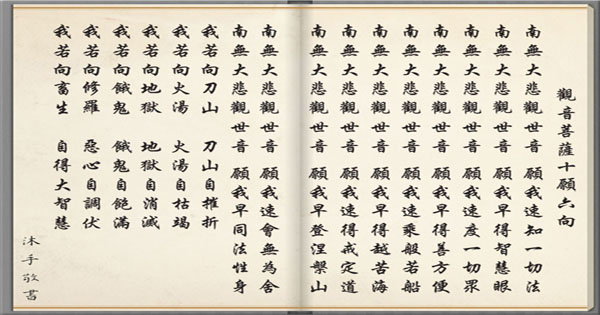 觀音菩薩十願六向
南無大悲觀世音 願我速知一切法
南無大悲觀世音 願我早得智慧眼
南無大悲觀世音 願我速度一切眾
南無大悲觀世音 願我早得善方便
南無大悲觀世音 願我速乘般若船
南無大悲觀世音 願我早得越苦海
南無大悲觀世音 願我速得戒定道
南無大悲觀世音 願我早登涅槃山
南無大悲觀世音 願我速會無為舍
南無大悲觀世音 願我早同法性身
我若向刀山 刀山自摧折
我若向火湯 火湯自枯竭
我若向地獄 地獄自消滅
我若向餓鬼 餓鬼自飽滿
我若向修羅 惡心自調伏
我若向畜生 自得大智慧
沐手敬書